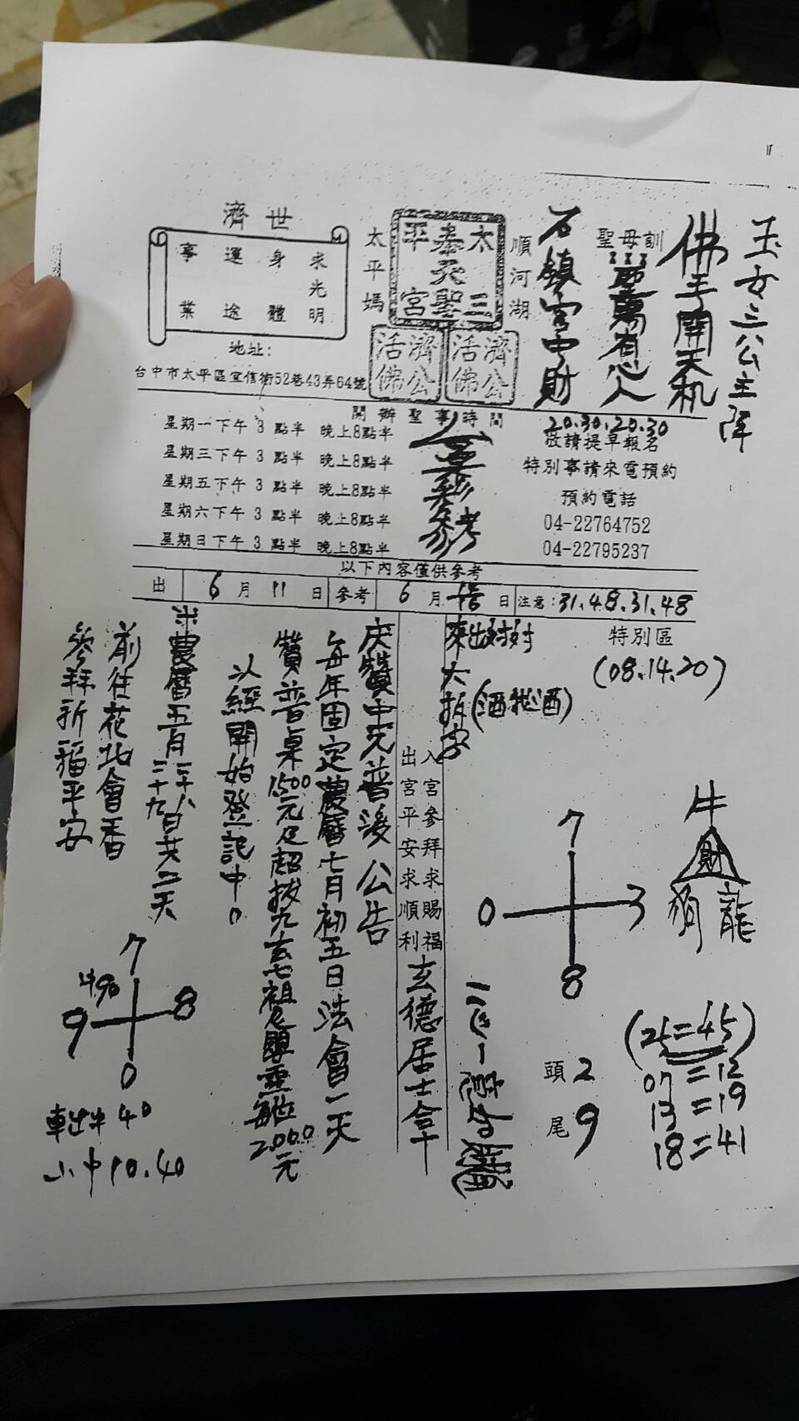 玉女三公主降
佛手開天机
聖母訓
石鎮宮中財
順河湖
太三
泰天聖
平宮
太平媽
濟公活佛
濟公活佛
濟世
求光明
身體
運途
事業
地址:
台中市太平區宜信街52巷43弄64號
開辦聖事時間
星期一下午 3 點半 晚上8點半
星期三下午 3 點半 晚上8點半
星期五下午 3 點半 晚上8點半
星期六下午 3 點半 晚上8點半
星期日下午 3 點半 晚上8點半
20.30.20.30
敬請提早報名
特別事請來電預約
預約電話
04-22764752
04-22795237
以下內容僅供參考
出 6 月 11 日 參考 6 月 日 注意:31.48.31.48
特別區
(08.14.20)
牛
財
狗 龍
7
0 3
8
(25=45)
07=12
13=19
18=41
頭 2
尾 9
入宮參拜求賜福
出宮平安求順利
玄德居士拿
慶贊中元普渡公告
每年固定農曆七月初五日法會一天
贊普桌1500元及超拔九玄七祖及嬰靈每位2000元
以經開始登記中。
※農曆五月二十八
二十九日共二天
前往花北會香
參拜祈福平安
7
9 8
0
車出牛 40
小中 90.40